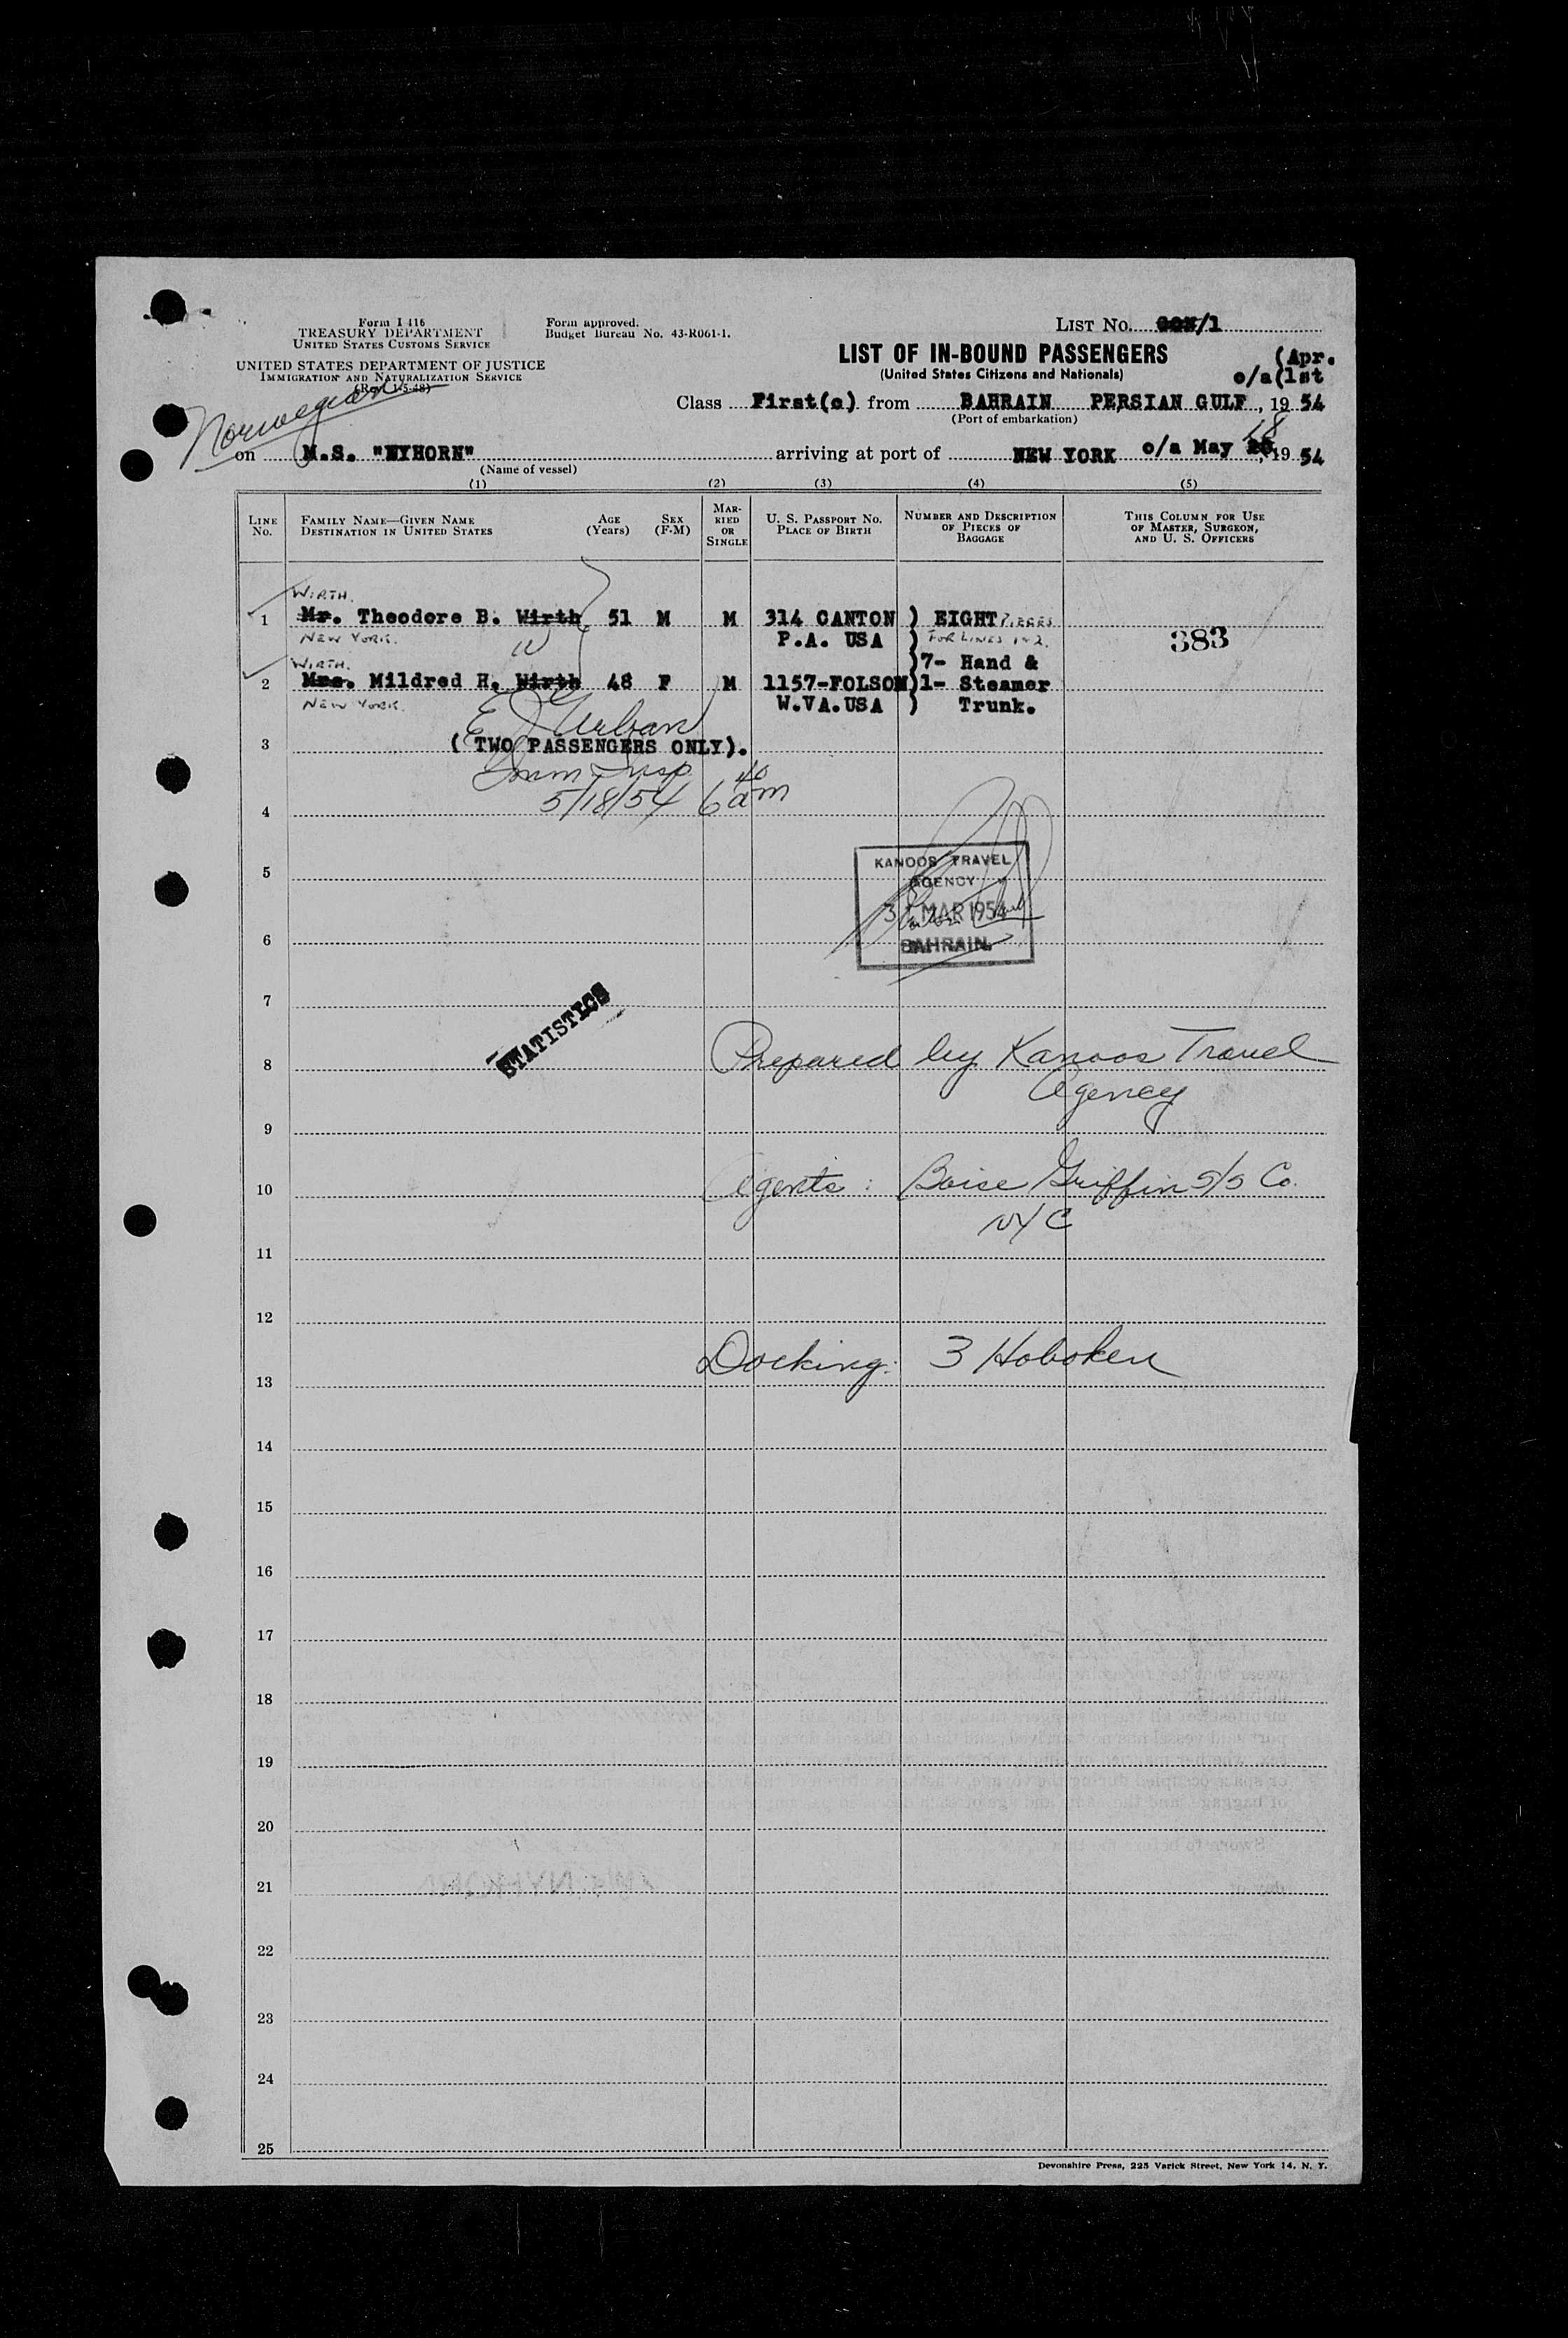 Form I 416
TREASURY DEPARTMENT
UNITED STATES CUSTOMS SERVICE
UNITED STATES DEPARTMENT OF JUSTICE
IMMIGRATION AND NATURALIZATION SERVICE
(Rev. 1-5-48)
Form approved.
Budget Bureau No. 43-R061-1.
LIST No. /1
LIST OF IN-BOUND PASSENGERS
(United States Citizens and Nationals)
(Apr.
o/a(1st
Norwegian
Class First(c) from BAHRAIN PERSIAN GULF, 19 54
(Port of embarkation)
18
on M.S. "NYHORN" arriving at port of NEW YORK o/a May , 19 54
(Name of vessel)
(1) (2) (3) (4) (5)
LINE No.
FAMILY NAME—GIVEN NAME
DESTINATION IN UNITED STATES
AGE (Years)
SEX (F-M)
MARRIED OR SINGLE
U. S. PASSPORT No.
PLACE OF BIRTH
NUMBER AND DESCRIPTION OF PIECES OF BAGGAGE
THIS COLUMN FOR USE OF MASTER, SURGEON, AND U. S. OFFICERS
WIRTH.
1 Mr. Theodore B. Wirth 51 M M 314 CANTON ) EIGHT PIECES
NEW YORK. P.A. USA ) FOR LINES 1+2. 383
WIRTH. )7- Hand &
2 Mrs. Mildred H. Wirth 48 F M 1157-FOLSOM)1- Steamer
NEW YORK. W.VA.USA ) Trunk.
E J Urban
3 ( TWO PASSENGERS ONLY).
Imm Insp
4 5/18/54 6 40 am
5
KANOOS TRAVEL
AGENCY
31 MAR 1954
BAHRAIN.
6
7
STATISTICS
8 Prepared by Kanoos Travel
Agency
9
10 Agents: Boise Griffin S/S Co.
NYC
11
12
13 Docking: 3 Hoboken
14
15
16
17
18
19
20
21
22
23
24
25
Devonshire Press, 225 Varick Street, New York 14, N. Y.